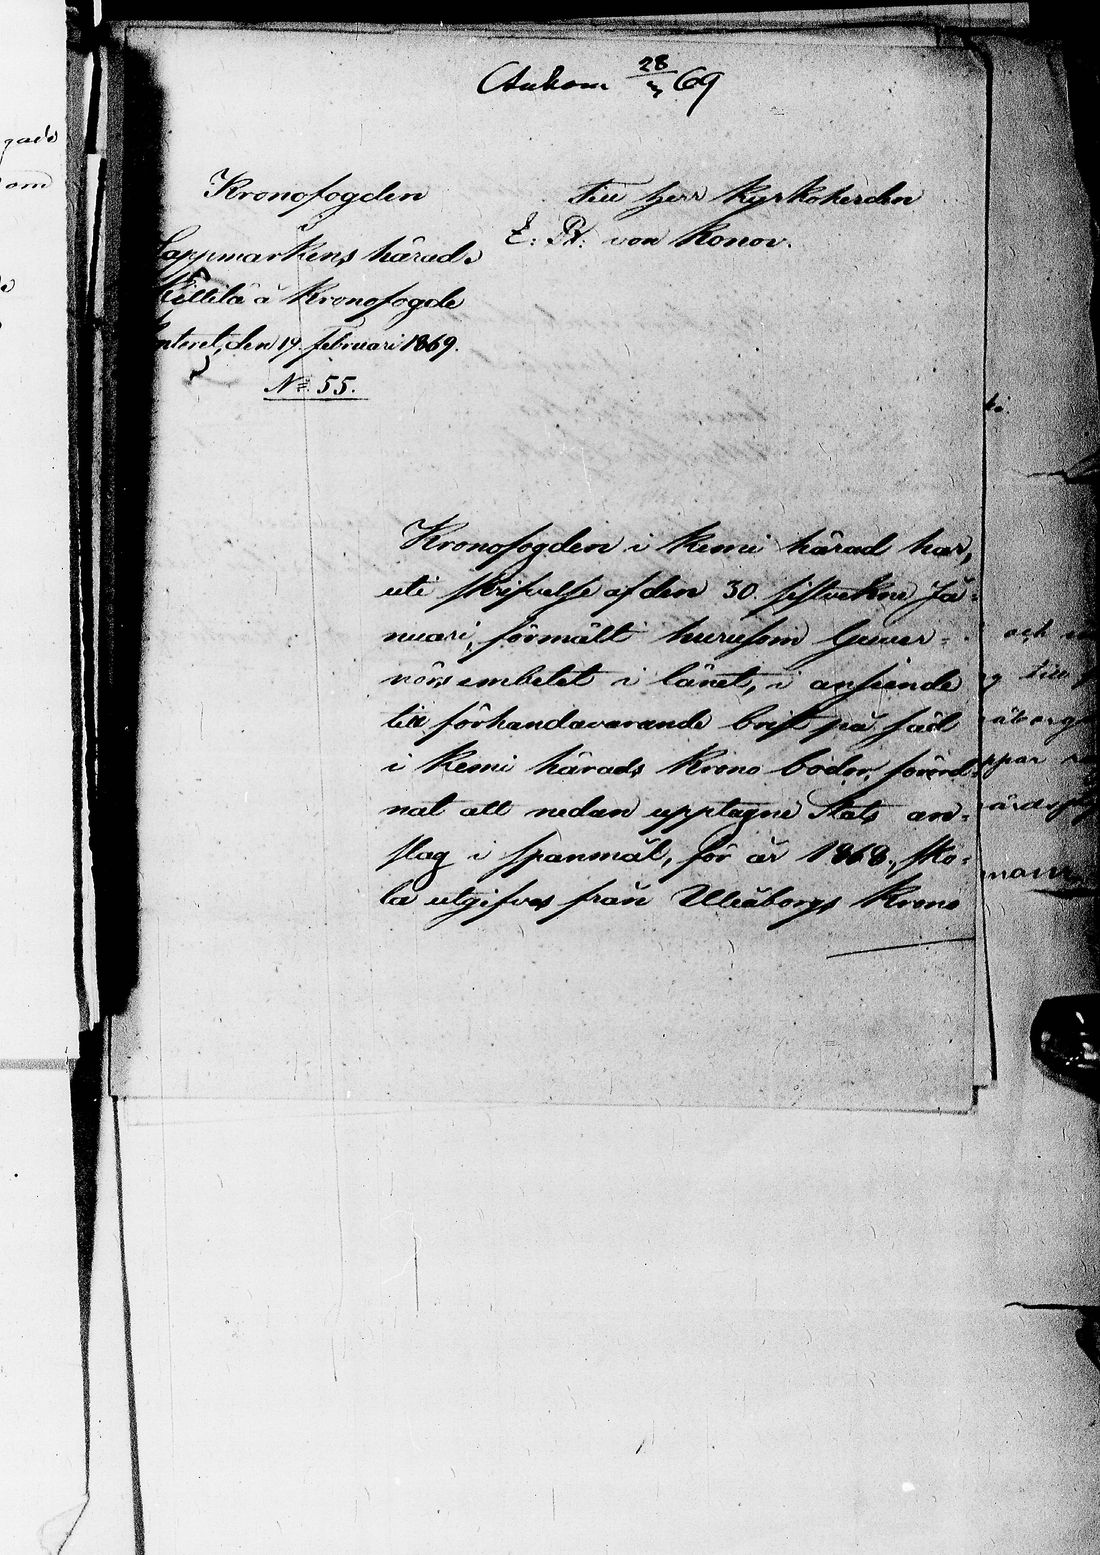 Ankom 28/3 69
Kronofogden
i
Lappmarkens härad.
Kittilä å Kronofogde
Contoret, den 19 februari 1869.
№ 55.
Till Herr Kyrkoherden
von Konow.
Kronofogden i Kemi härad har,
uti skrifvelse af den 30 sistvekne Ja-
nuari, förmält hurusom Guver-
nörsembetet i länet, i anseende
till förhandavarande brist på säd
i Kemi härads Krono bodor, förord-
nat att nedan upptagne Stats an-
slag i spanmål, för år 1868, sko-
la utgifvas från Uleåborgs Krono